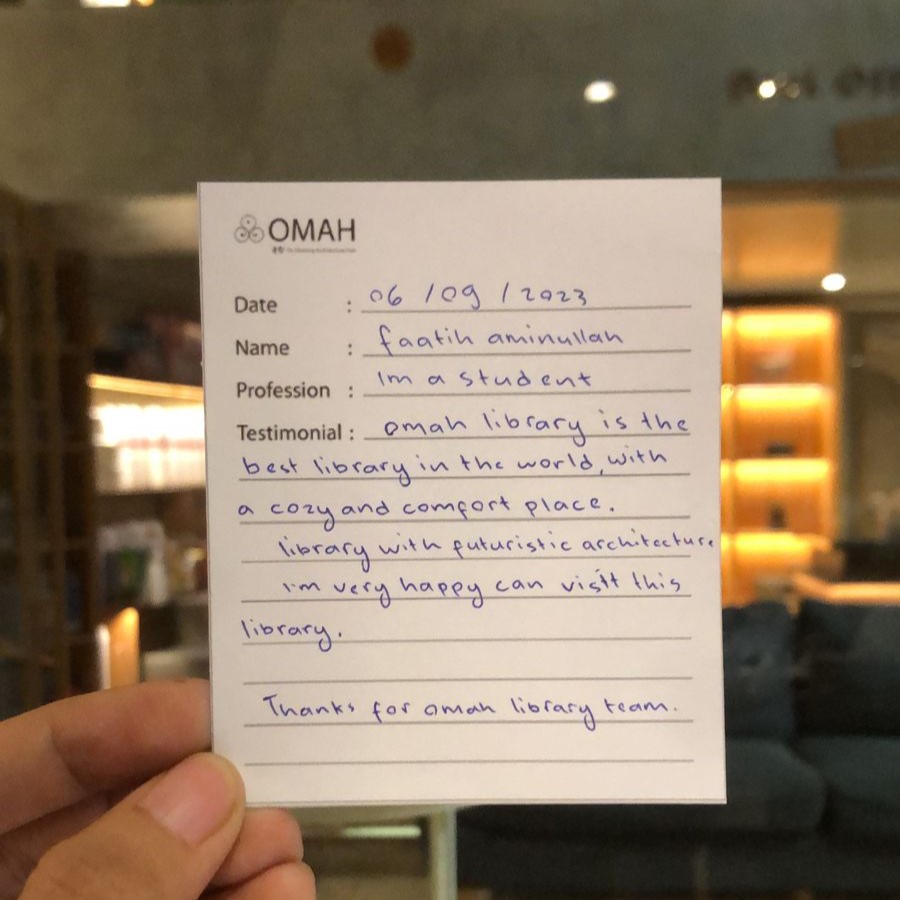 OMAH
Date : 06 / 09 / 2023
Name : faatih aminullah
Profession : Im a student
Testimonial : omah library is the
best library in the world, with
a cozy and comfort place.
library with futuristic architecture
i'm very happy can visit this
library.
Thanks for omah library team.